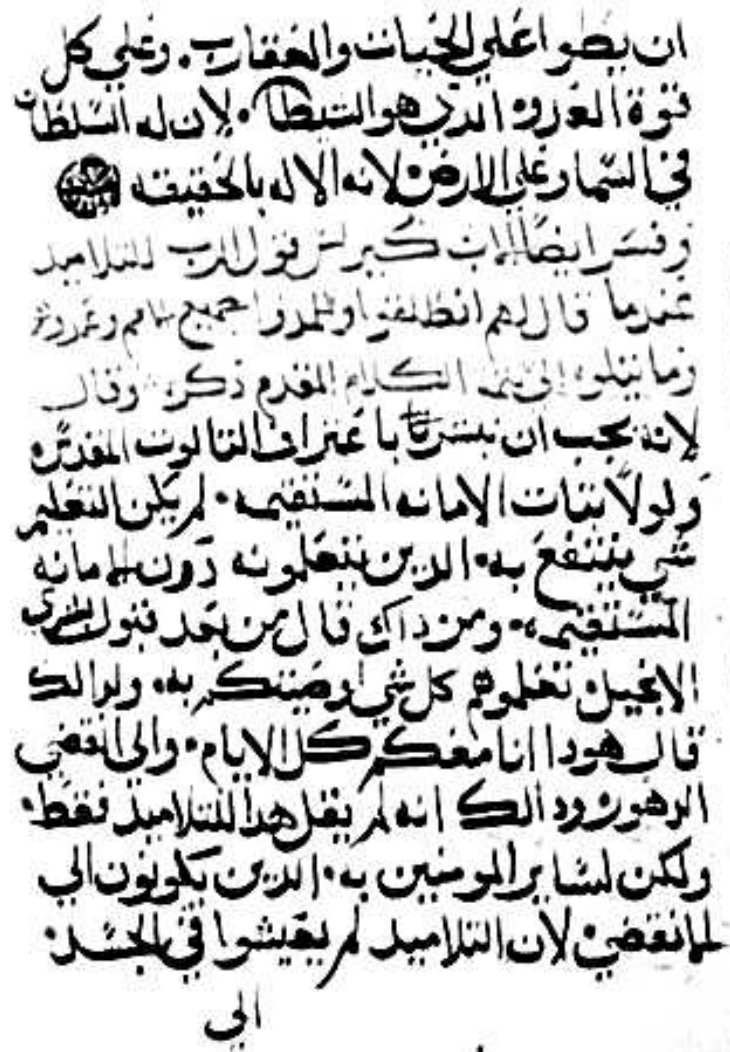 ان يطوا علي الحيات والعقارب. وعلي كل
قوة العدو. الدي هو الشيطان. لان له السلطان
في السما وعلي الارض لانه الاله بالحقيقه
وفسر ايضا الاب كيرلس قول الرب للتلاميد
عندما قال لهم انطلقوا وتلمدوا جميع الامم وعمدوهم
وما يتلوه الي تمت الكلام المقدم دكره. وقال
لانه يجب ان نبشر بالاعتراف التالوت المقدس
ولولا تبات الامانه المستقيمه. لم يكن التعليم
شي ينتفع به. الدين يتعلمونه دون الامانه
المستقيمه. ومن داك قال من بعد قبول بشري
الانجيل تعلموهم كل شي اوصيتكم به. ولدالك
قال هودا انا معكم كل الايام. والي انقضي
الدهور ودالك انه لم يقل هدا للتلاميد فقط.
ولكن لساير المومنين به. الدين يكونون الي
الانقضي. لان التلاميد لم يعيشوا في الجسد.
الي